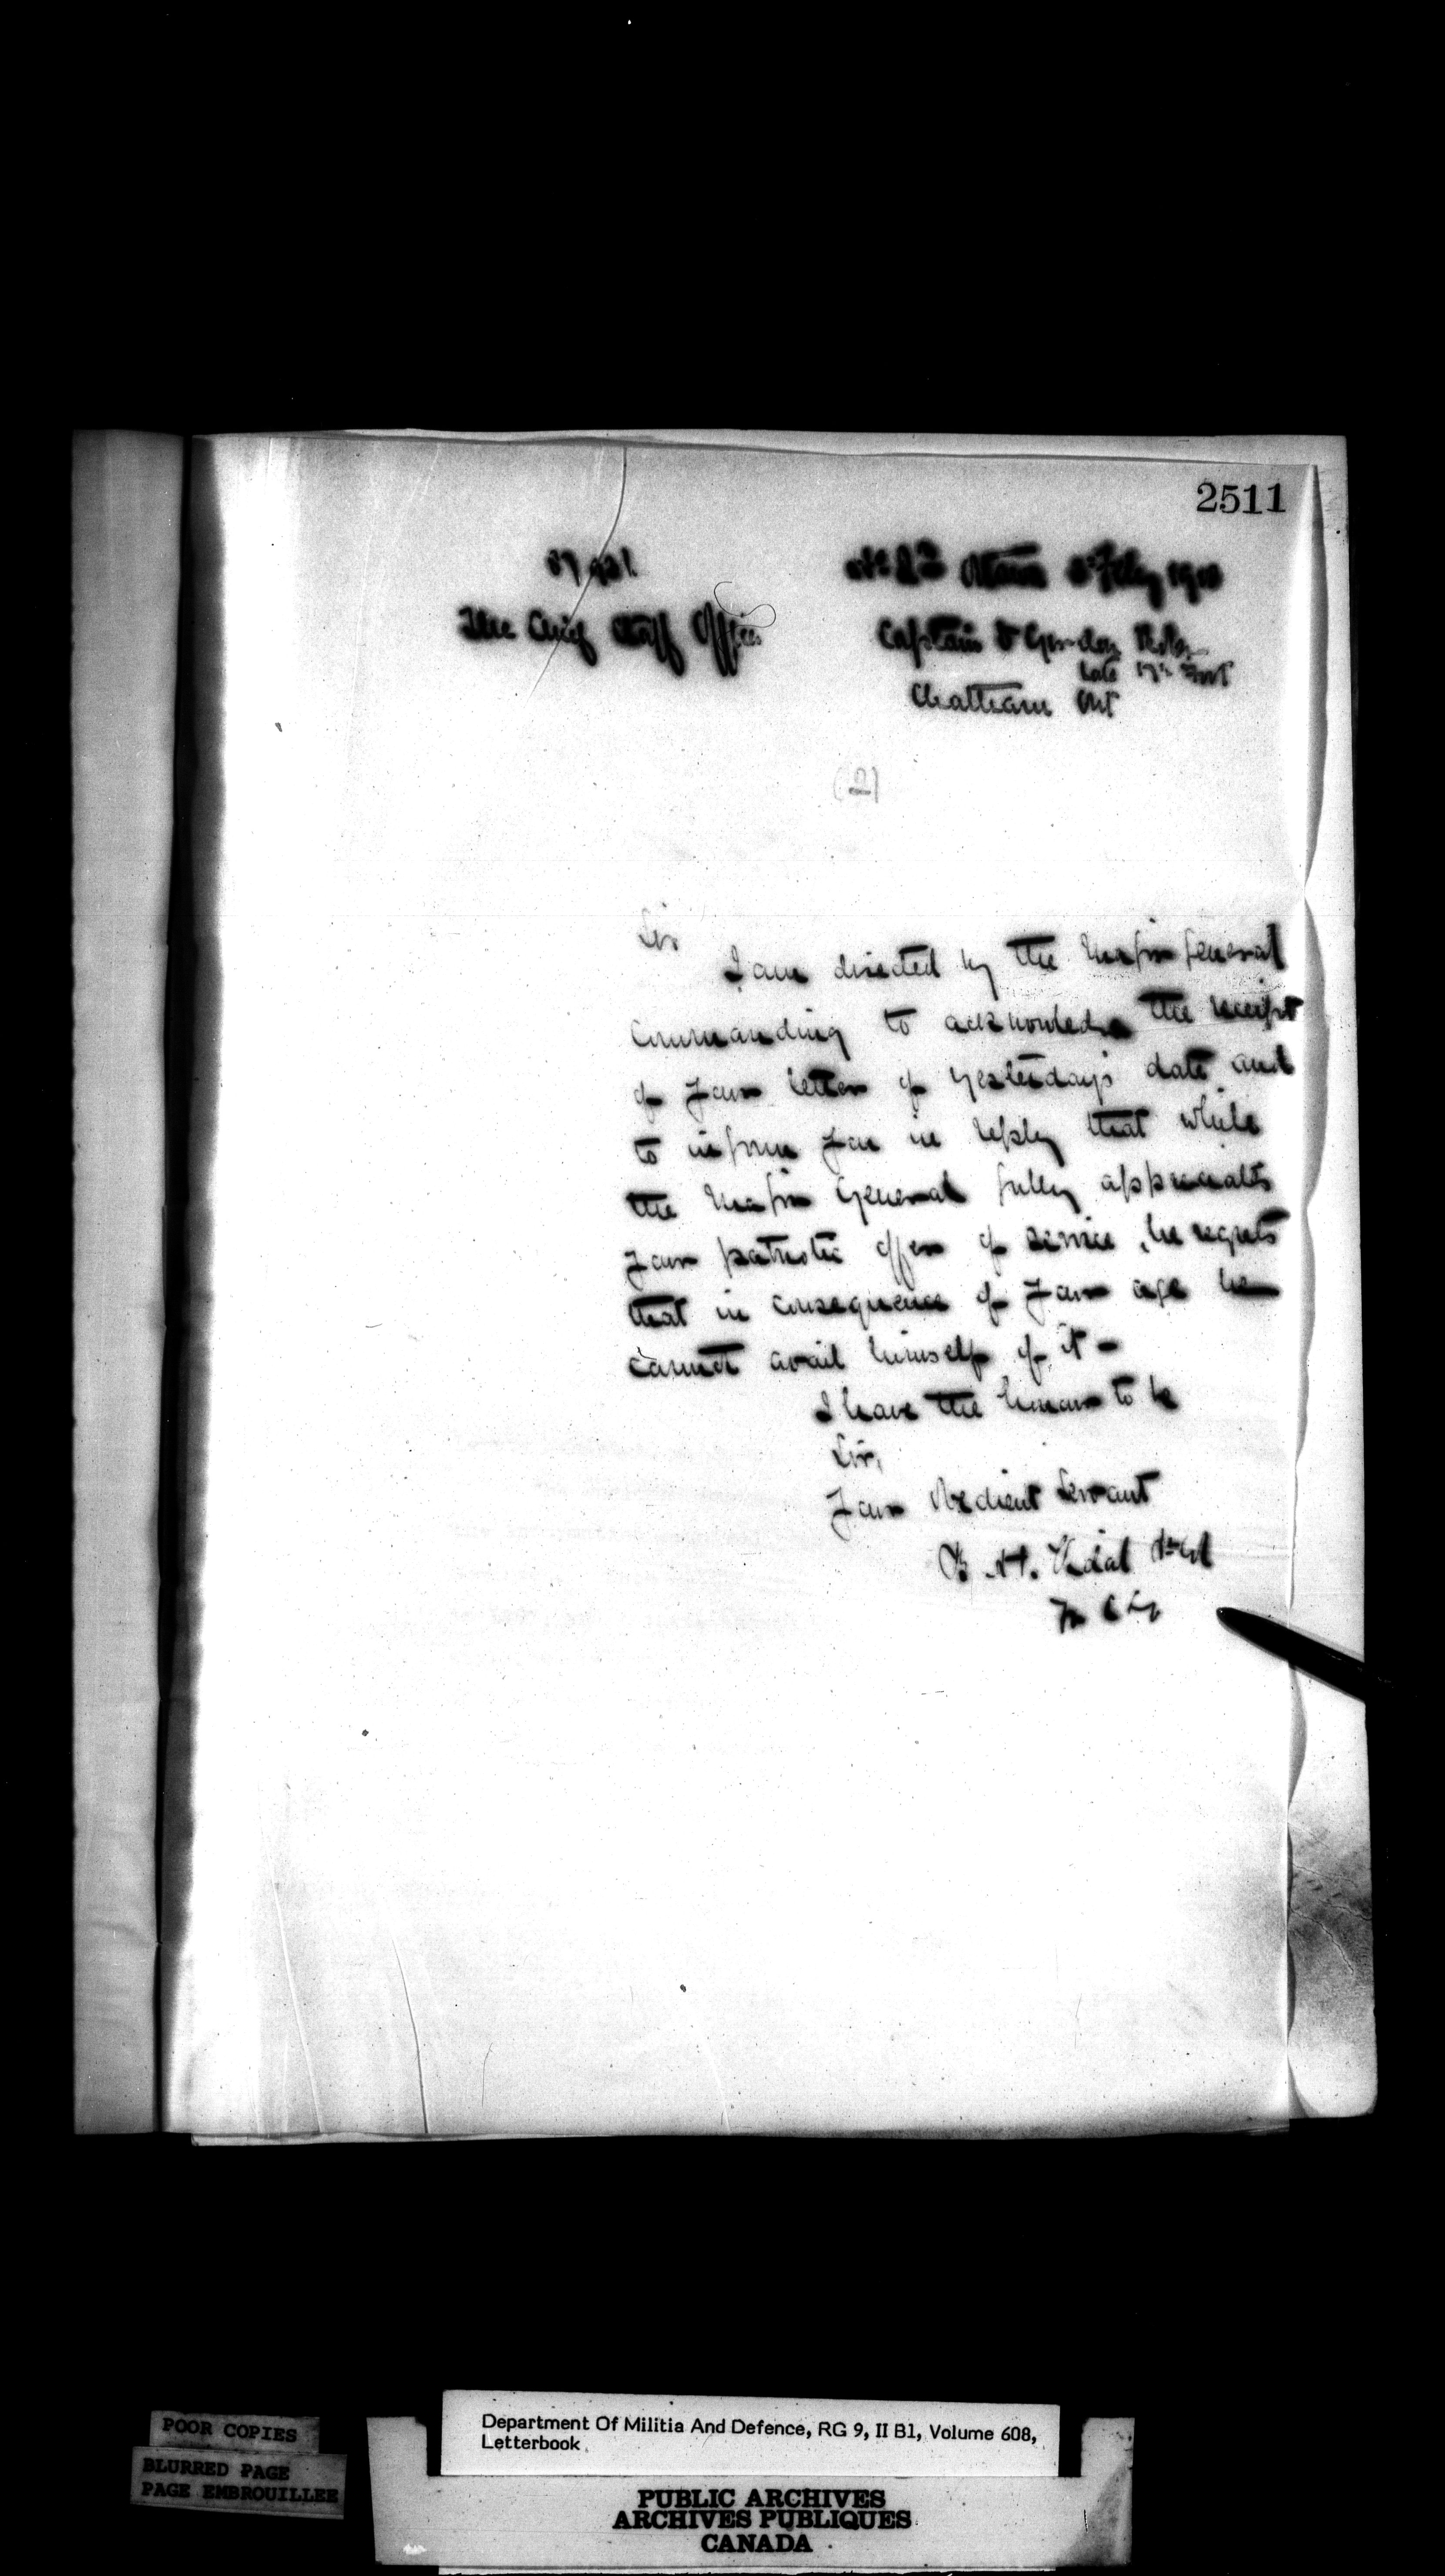 2511
The Chief Staff Officer
Captain Gordon
late 17th Foot
Chatham Ont
(2)
Sir
I am directed by the Major General
Commanding to acknowledge the receipt
of your letter of yesterday's date and
to inform you in reply that while
the Major General fully appreciates
your patriotic offer of service, he regrets
that in consequence of your age he
cannot avail himself of it -
I have the honour to be
Sir,
Your Obedient Servant
B. H. Vidal Lt Col
POOR COPIES
BLURRED PAGE
PAGE EMBROUILLEE
Department Of Militia And Defence, RG 9, II B1, Volume 608,
Letterbook
PUBLIC ARCHIVES
ARCHIVES PUBLIQUES
CANADA